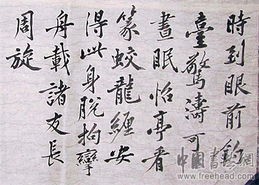 時到眼前釣
臺驚濤可
晝眠怡亭看
篆蛟龍纏安
得此身脫拘攣
舟載諸友長
周旋
中国书法网
www.freehead.com